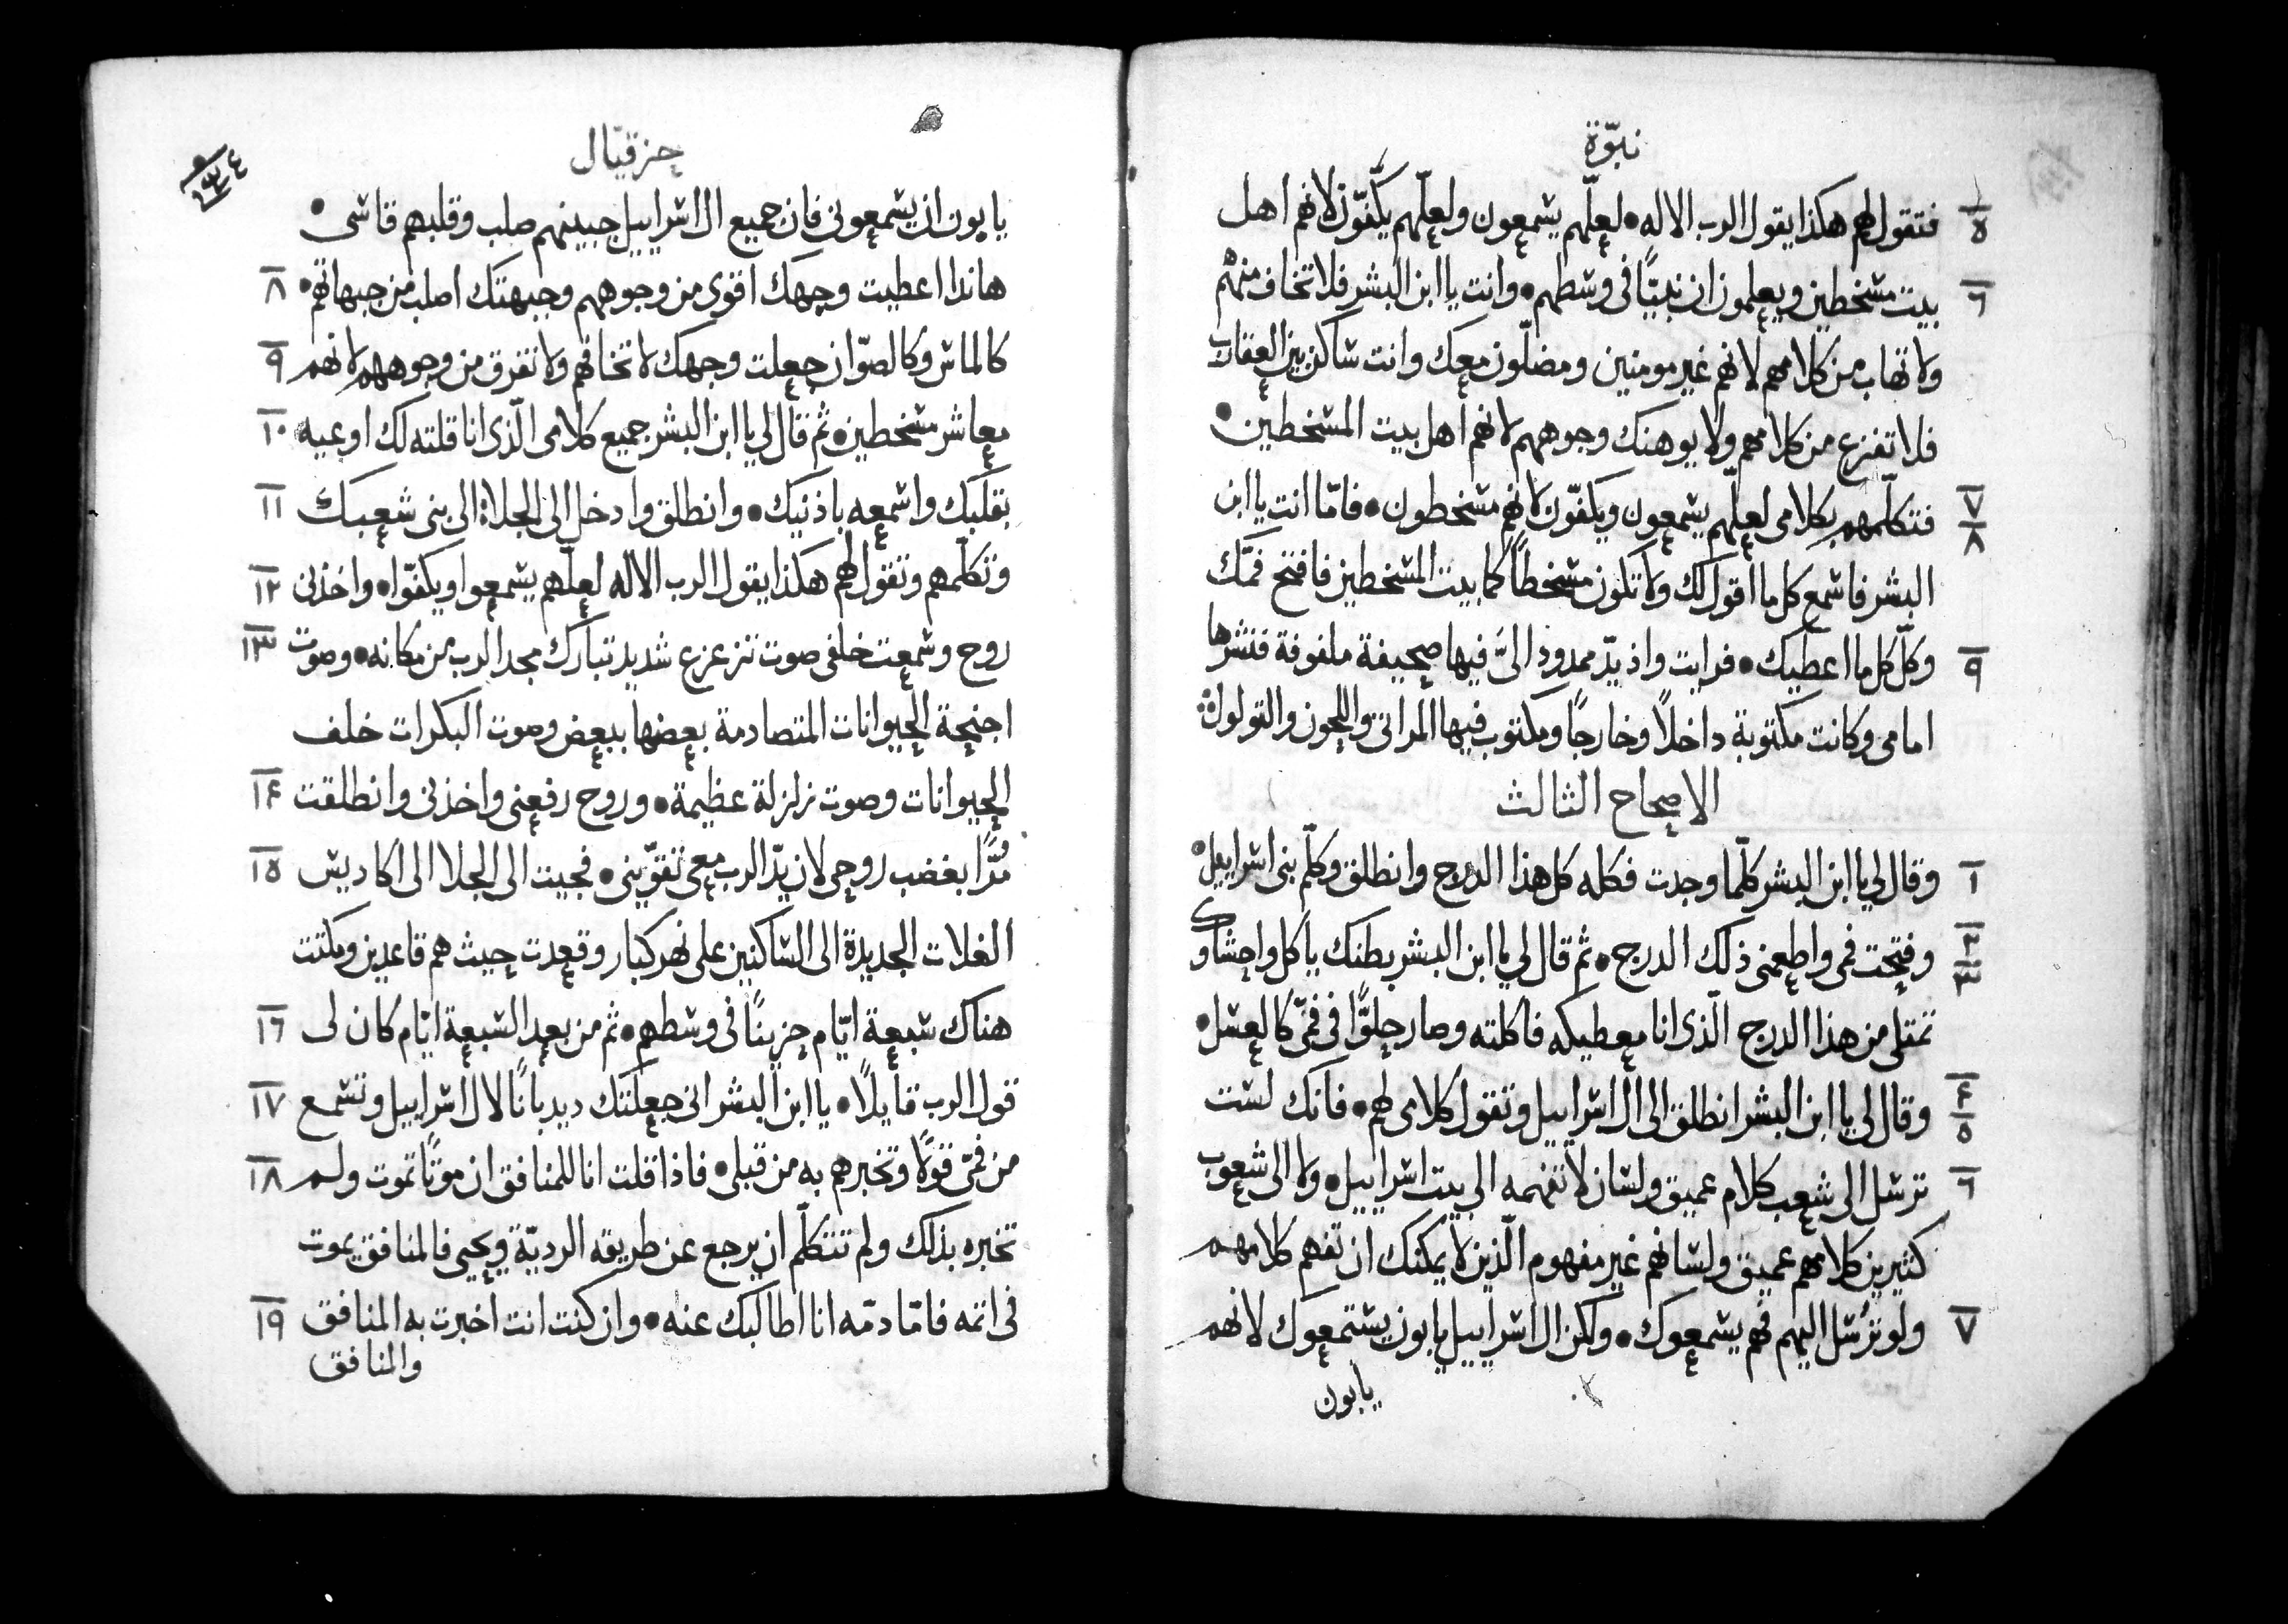 نبوّة
٥ فتقول لهم هكذا يقول الرب الاله • لعلّهم يسمعون ولعلّهم يكفّون لانهم اهل
٦ بيت مسخطين ويعلمون ان نبيًّا فى وسطهم • وانت يا ابن البشر فلا تخاف منهم
ولا تهاب من كلامهم لانهم غير مومنين ومضلّون معك وانت ساكن بين العقارب
فلا تفزع من كلامهم ولا يوهنك وجوههم لانهم اهل بيت المسخطين •
٧ ٨ فتكلّمهم بكلامى لعلّهم يسمعون ويكفّون لانهم مسخطون • فامّا انت يا ابن
البشر فاسمع كل ما اقول لك ولا تكون مسخطاً كما بيت المسخطين فافتح فمّك
٩ وكلّ كل ما اعطيك • فرايت واذ يدّ ممدود الىَّ فيها صحيفة ملفوفة فنشرها
امامى وكانت مكتوبة داخلاً وخارجًا ومكتوب فيها المراثى واللحون والتولول
الاصحاح الثالث
١ وقال لى يا ابن البشر كلّما وجدت فكله كل هذا الدرج وانطلق وكلّم بنى اسراييل •
٢ ٣ وفتحت فمى واطعمنى ذلك الدرج • ثم قال لى يا ابن البشر بطنك ياكل واحشاوك
تمتلى من هذا الدرج الّذى انا معطيكه فاكلته وصار حلوًّا فى فمّى كالعسل •
٤ ٥ وقال لى يا ابن البشر انطلق الى ال اسراييل وتقول كلامى لهم • فانك لست
٦ ترسل الى شعب كلام عميق ولسان لا تفهمه الى بيت اسراييل • ولا الى شعوب
كثيرين كلامهم عميق ولسانهم غير مفهوم الّذين لا يمكنك ان تفهم كلامهم
٧ ولو ترُسل اليهم فهم يسمعوك • ولكن ال اسراييل يابون يستمعوك لانهم
يابون
حزقيّال
يابون ان يسمعونى فان جميع ال اسراييل جبينهم صلب وقلبهم قاسى •
٨ هانذا اعطيت وجهك اقوى من وجوههم وجبهتك اصلب من جبهاتهم •
٩ كالماس وكالصوّان جعلت وجهك لا تخافهم ولا تفرق من وجوههم لانهم
١٠ معاشر مسخطين • ثم قال لى يا ابن البشر جميع كلامى الّذى انا قلته لك اوعيه
١١ بقلبك واسمعه باذنيك • وانطلق وادخل الى الجلاة الى بنى شعبك
١٢ وتكلّمهم وتقول لهم هكذا يقول الرب الاله لعلّهم يسمعوا ويكفّوا • واخذنى
١٣ روح وسمعت خلفى صوت تزعزع شديد تبارك مجد الرب من مكانه • وصوت
اجنحة الحيوانات المتصادمة بعضها ببعض وصوت البكرات خلف
١٤ الحيوانات وصوت زلزلة عظيمة • وروح رفعنى واخذنى وانطلقت
١٥ مُرًّا بغضب روحى لان يدّ الرب معى تقوّينى • فجيت الى الجلا الى اكاديس
الغلات الجديدة الى الساكنين على نهر كبار وقعدت حيث هم قاعدين ومكثت
١٦ هناك سبعة ايّام حزينًا فى وسطهم • ثم من بعد السبعة ايّام كان لى
١٧ قول الرب قايلاً • يا ابن البشر انى جعلتك ديدبانًا لال اسراييل وتسمع
١٨ من فمّى قولاً وتخبرهم به من قبلى • فاذا قلت انا للمنافق ان موتًا تموت ولم
تخبره بذلك ولم تتكلّم ان يرجع عن طريقه الرديّة ويحيى فالمنافق يموت
١٩ فى اثمه فامّا دمّه انا اطالبك عنه • وان كنت انت اخبرت به المنافق
والمنافق